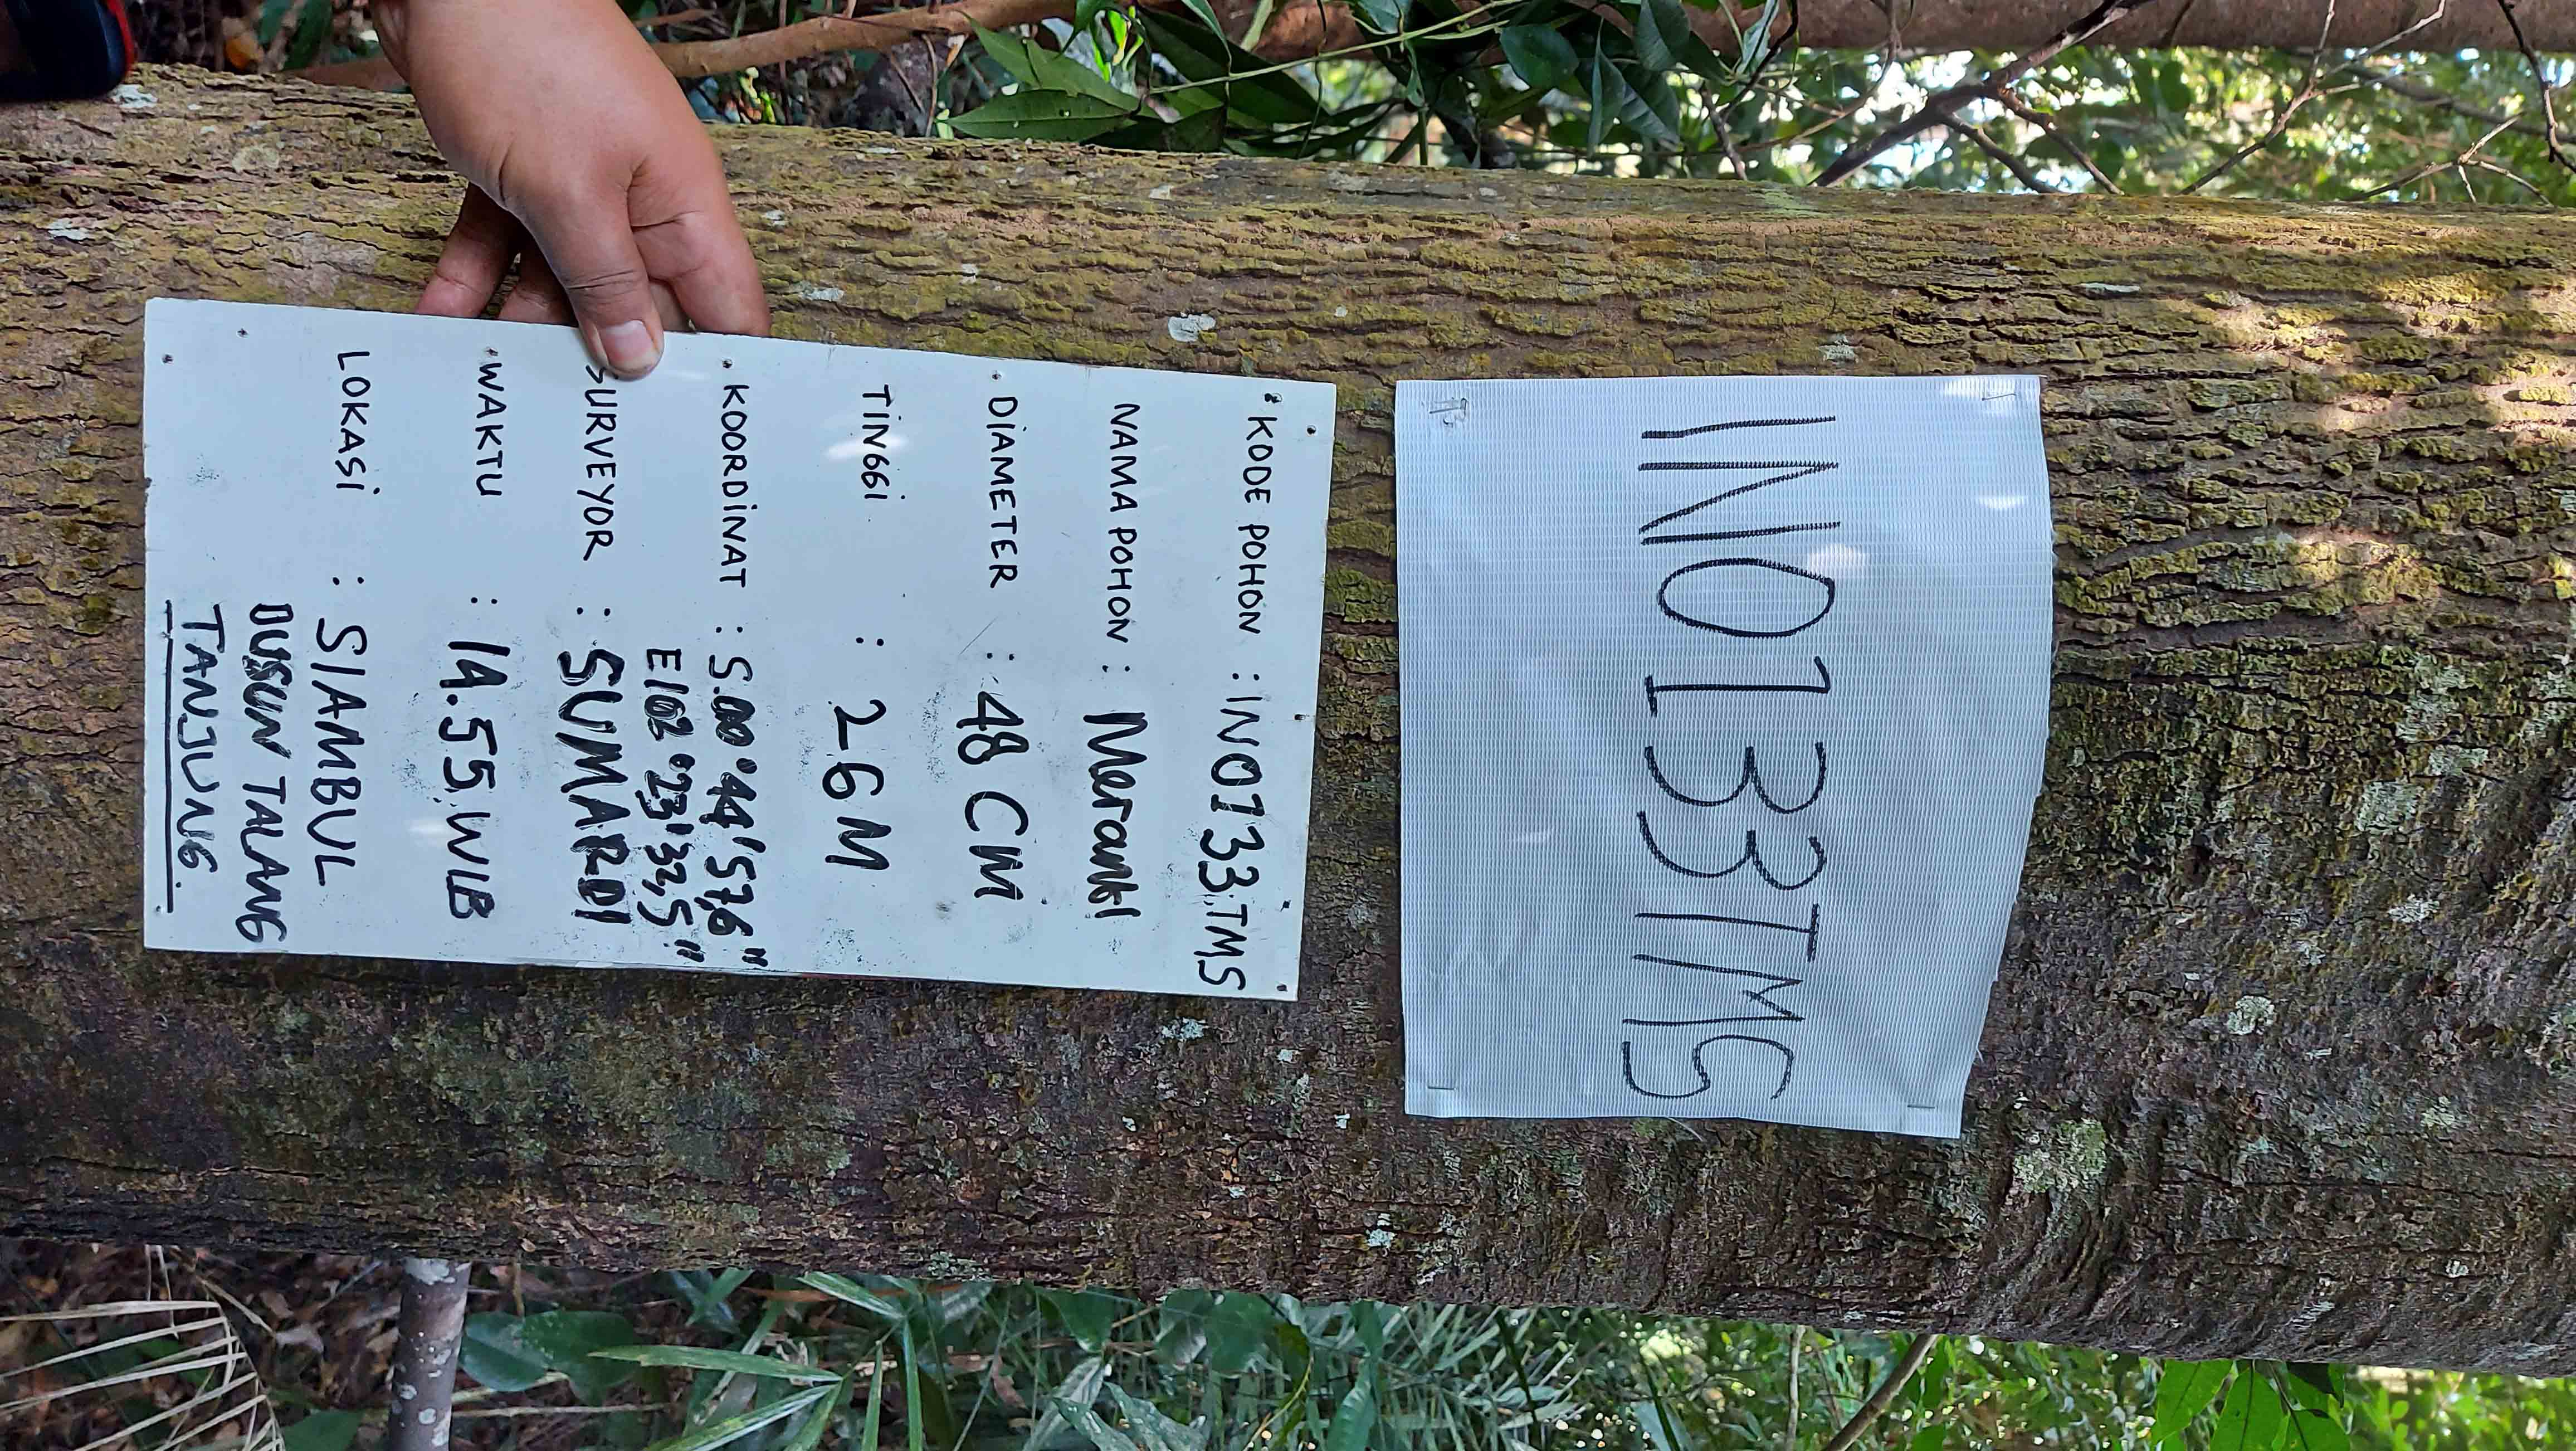 INO133TMS
KODE POHON : INO133.TMS
NAMA POHON : Meranti
DIAMETER : 48 CM
TINGGI : 26 M
KOORDINAT : S.00°44'57,6"
E102°23'32,5"
SURVEYOR : SUMARDI
WAKTU : 14.55.WIB
LOKASI : SIAMBUL
DUSUN TALANG
TANJUNG.